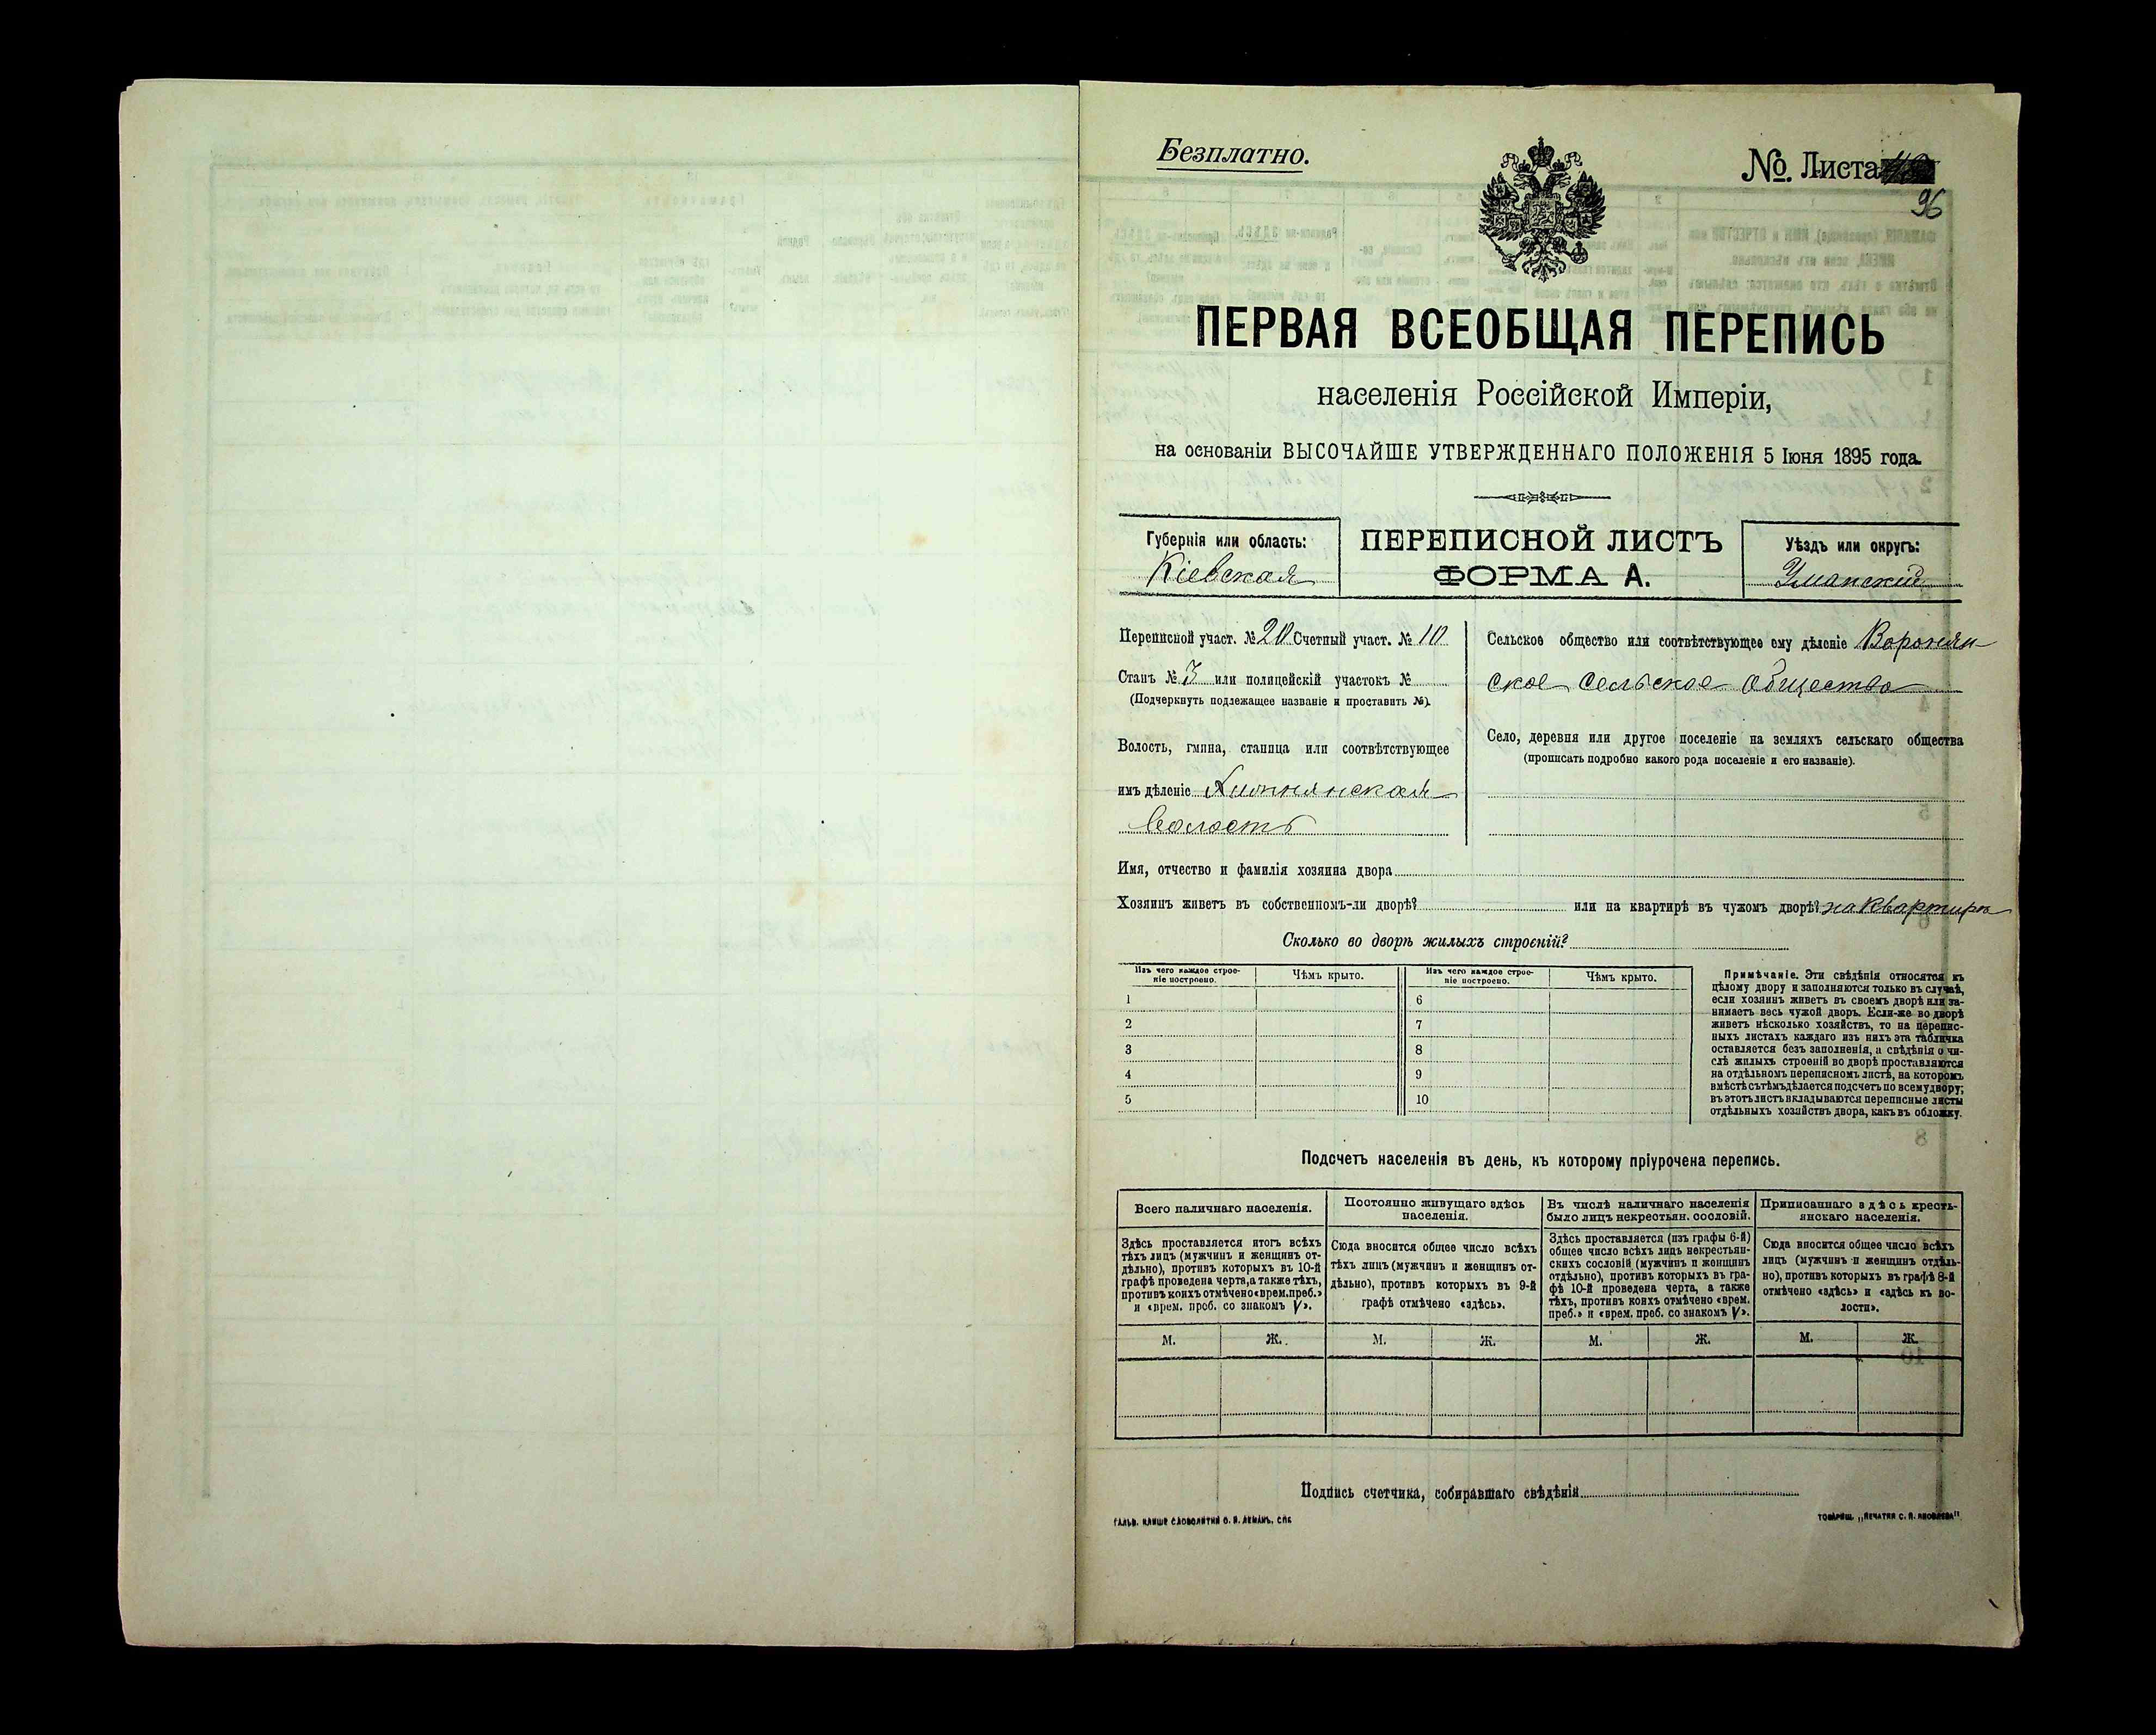 Безплатно.
№ Листа
96
ПЕРВАЯ ВСЕОБЩАЯ ПЕРЕПИСЬ
населенія Россійской Имперіи,
на основаніи ВЫСОЧАЙШЕ УТВЕРЖДЕННАГО ПОЛОЖЕНІЯ 5 Іюня 1895 года.
Губернія или область:
Кіевская
ПЕРЕПИСНОЙ ЛИСТЪ
ФОРМА А.
Уѣздъ или округъ:
Уманскій
Переписной участ. № 20 Счетный участ. № 10
Станъ № 3 или полицейскій участокъ №
(Подчеркнуть подлежащее названіе и проставить №).
Волость, гмина, станица или соотвѣтствующее
имъ дѣленіе
волость
Сельское общество или соотвѣтствующее ему дѣленіе
ское сельское общество
Село, деревня или другое поселеніе на земляхъ сельскаго общества
(прописать подробно какого рода поселеніе и его названіе).
Имя, отчество и фамилія хозяина двора
Хозяинъ живетъ въ собственномъ-ли дворѣ? или на квартирѣ въ чужомъ дворѣ? на квартирѣ
Сколько во дворѣ жилыхъ строеній?
Изъ чего каждое строе-
ніе построено.
Чѣмъ крыто.
Изъ чего каждое строе-
ніе построено.
Чѣмъ крыто.
1
2
3
4
5
6
7
8
9
10
Примѣчаніе. Эти свѣдѣнія относятся къ
цѣлому двору и заполняются только въ случаѣ,
если хозяинъ живетъ въ своемъ дворѣ или за-
нимаетъ весь чужой дворъ. Если-же во дворѣ
живетъ нѣсколько хозяйствъ, то на перепис-
ныхъ листахъ каждаго изъ нихъ эта табличка
оставляется безъ заполненія, а свѣдѣнія о чи-
слѣ жилыхъ строеній во дворѣ проставляются
на отдѣльномъ переписномъ листѣ, на которомъ
вмѣстѣ съ тѣмъ дѣлается подсчетъ по всему двору;
въ этотъ листъ вкладываются переписные листы
отдѣльныхъ хозяйствъ двора, какъ въ обложку.
Подсчетъ населенія въ день, къ которому пріурочена перепись.
Всего наличнаго населенія.
Постоянно живущаго здѣсь
населенія.
Въ числѣ наличнаго населенія
было лицъ некрестьян. сословій.
Приписаннаго здѣсь кресть-
янскаго населенія.
Здѣсь проставляется итогъ всѣхъ
тѣхъ лицъ (мужчинъ и женщинъ от-
дѣльно), противъ которыхъ въ 10-й
графѣ проведена черта, а также тѣхъ,
противъ коихъ отмѣчено «врем. преб.»
и «врем. преб. со знакомъ V».
Сюда вносится общее число всѣхъ
тѣхъ лицъ (мужчинъ и женщинъ от-
дѣльно), противъ которыхъ въ 9-й
графѣ отмѣчено «здѣсь».
Здѣсь проставляется (изъ графы 6-й)
общее число всѣхъ лицъ некрестьян-
скихъ сословій (мужчинъ и женщинъ
отдѣльно), противъ которыхъ въ гра-
фѣ 10-й проведена черта, а также
тѣхъ, противъ коихъ отмѣчено «врем.
преб.» и «врем. преб. со знакомъ V».
Сюда вносится общее число всѣхъ
лицъ (мужчинъ и женщинъ отдѣль-
но), противъ которыхъ въ графѣ 8-й
отмѣчено «здѣсь» и «здѣсь къ во-
лости».
М. Ж. М. Ж. М. Ж. М. Ж.
Подпись счетчика, собиравшаго свѣдѣнія
ГАЛЬВ. КЛИШЕ СЛОВОЛИТНИ О. И. ЛЕМАНЪ, СПБ
ТОВАРИЩ. „ПЕЧАТНЯ С. П. ЯКОВЛЕВА"